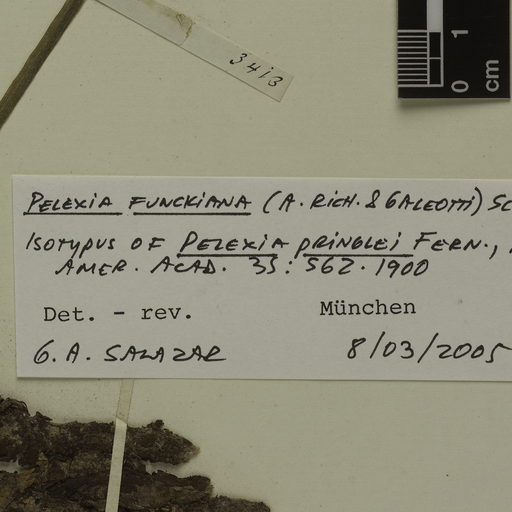 3413
0 1
cm
PELEXIA FUNCKIANA (A. RICH. & GALEOTTI) SC
ISOTYPUS OF PELEXIA PRINGLEI FERN.,
AMER. ACAD. 35: 562. 1900
Det. - rev. München
G. A. SALAZAR 8/03/2005